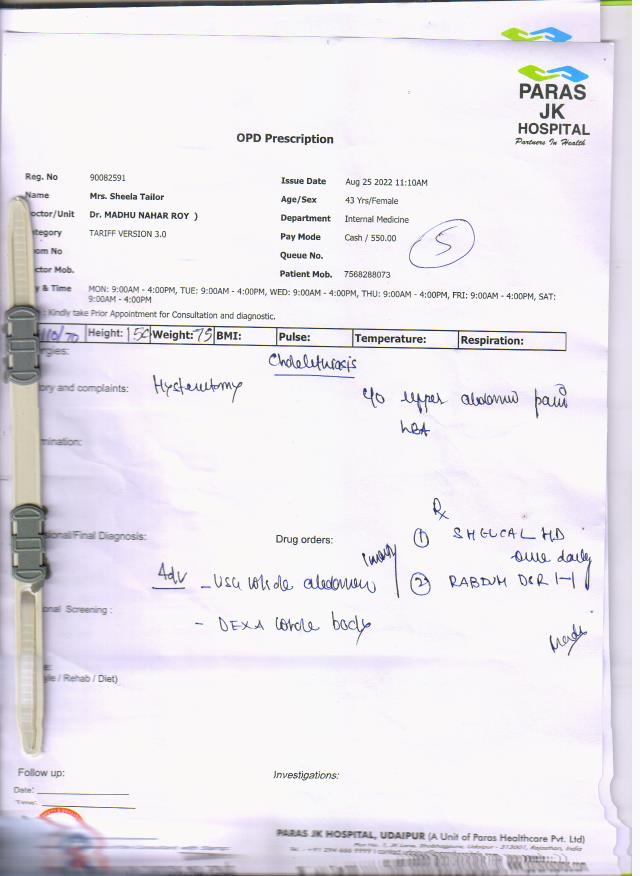 PARAS
JK
HOSPITAL
Partners In Health
OPD Prescription
Reg. No 90082591
Issue Date Aug 25 2022 11:10AM
Name Mrs. Sheela Tailor
Age/Sex 43 Yrs/Female
octor/Unit Dr. MADHU NAHAR ROY )
Department Internal Medicine
tegory TARIFF VERSION 3.0
Pay Mode Cash / 550.00
5
om No
Queue No.
ctor Mob.
Patient Mob. 7568288073
y & Time MON: 9:00AM - 4:00PM, TUE: 9:00AM - 4:00PM, WED: 9:00AM - 4:00PM, THU: 9:00AM - 4:00PM, FRI: 9:00AM - 4:00PM, SAT:
9:00AM - 4:00PM
: Kindly take Prior Appointment for Consultation and diagnostic.
110/70 Height: 150 Weight: 75 BMI: Pulse: Temperature: Respiration:
rgies:
Cholelithiasis
ory and complaints: Hysterectomy c/o upper abdomen pain
LBA
mination:
Rx
sional/Final Diagnosis:
Drug orders:
① SHELCAL HD
one daily
Adv - USG whole abdomen
② RABIUM DSR 1-1
onal Screening :
- DEXA whole body
e:
yle / Rehab / Diet)
Follow up:
Investigations:
Date:
Time:
PARAS JK HOSPITAL, UDAIPUR (A Unit of Paras Healthcare Pvt. Ltd)